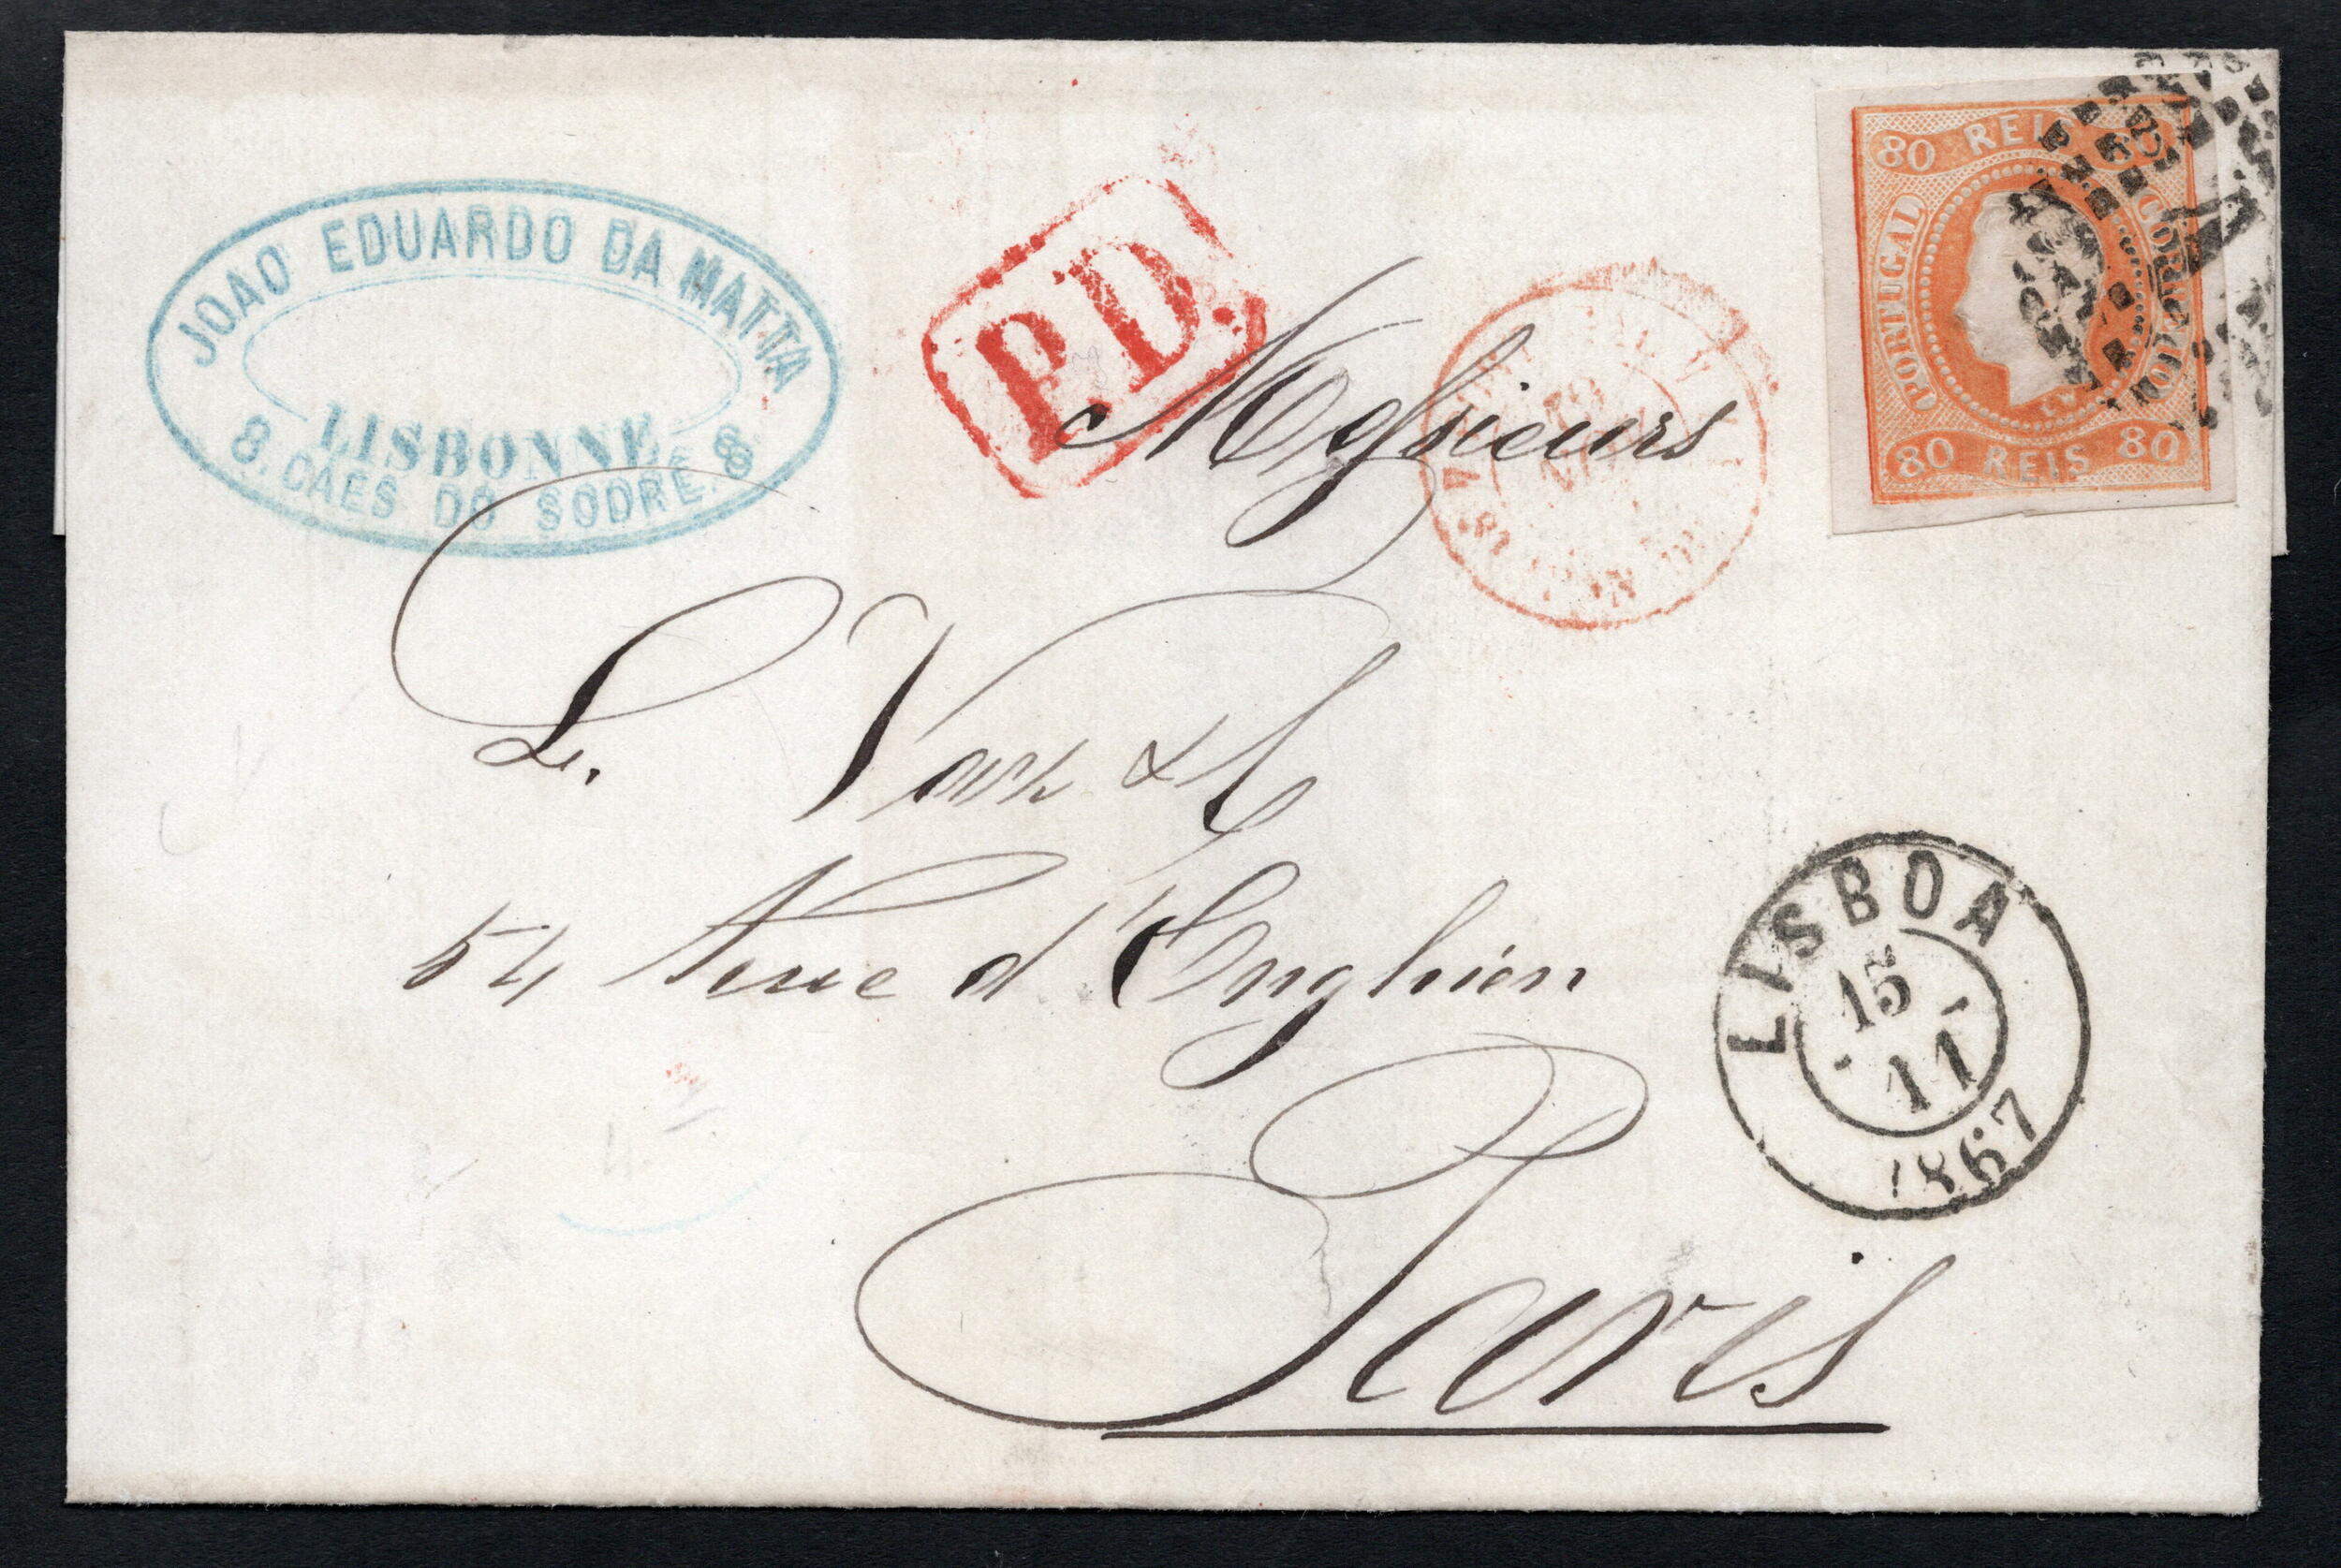 JOAO EDUARDO DA MATTA
LISBONNE
8. CAES DO SODRÉ. 8
P.D.
80 REIS 80
PORTUGAL
CORREIO
80 REIS 80
Messieurs
L. & C
54 Rue d'Enghien
Paris
LISBOA
15
11
1867